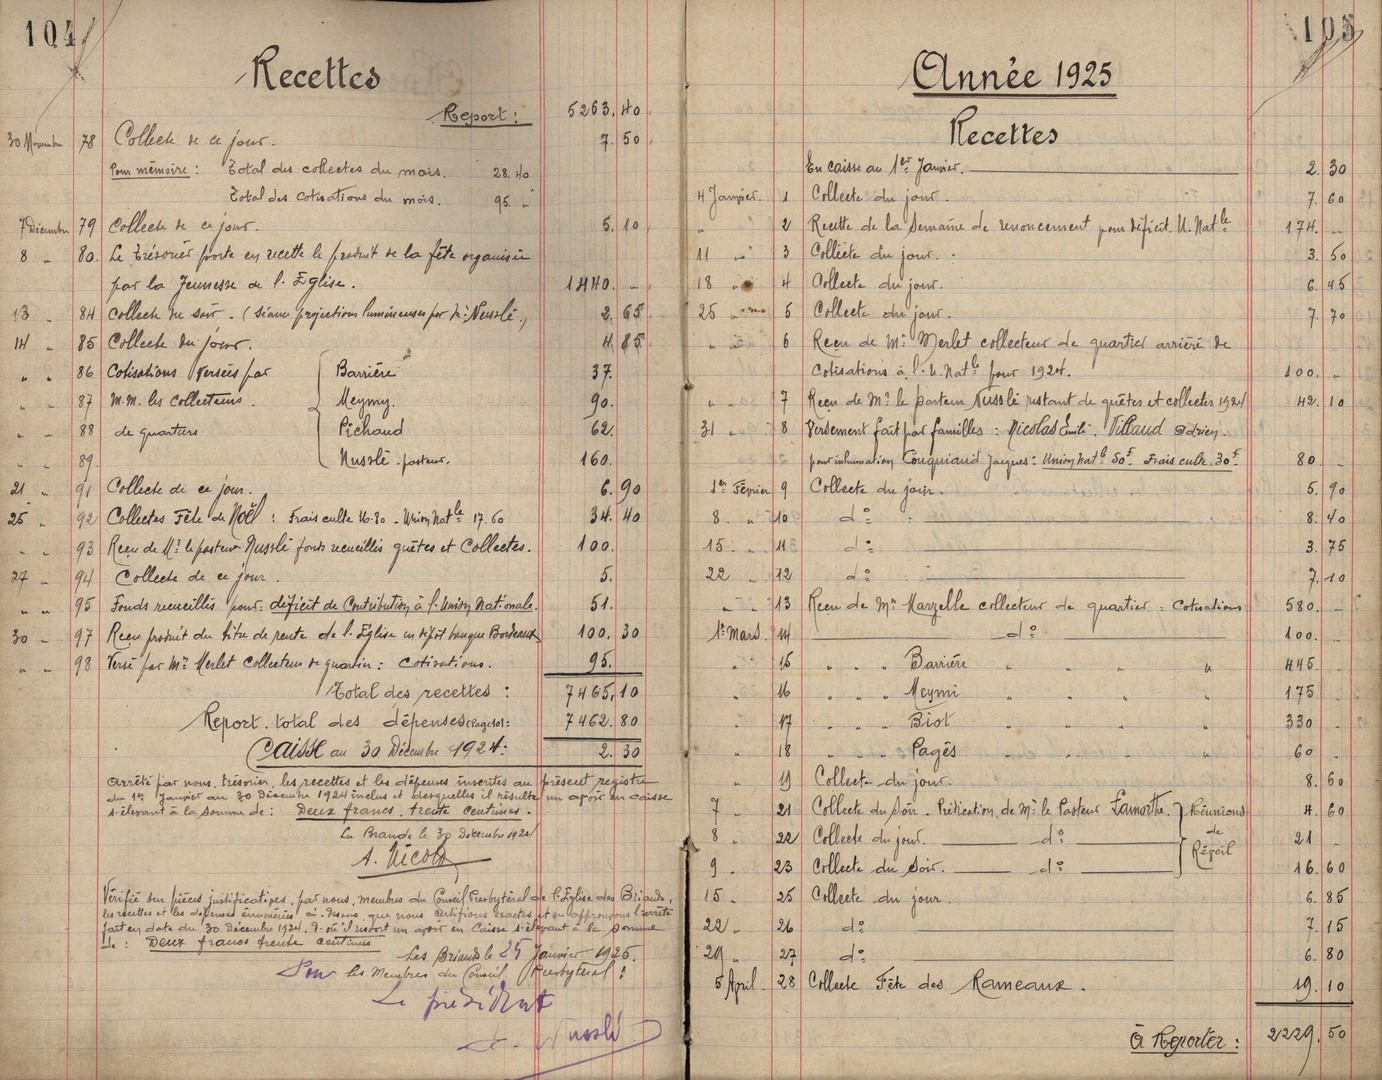 104
Recettes
Report : 5263. 40
30 Novembre 78 Collecte de ce jour. 7. 50
Pour mémoire : Total des collectes du mois. 28. 40
Total des cotisations du mois. 95. "
7 Décembre 79 Collecte de ce jour. 5. 10
8 " 80. Le Trésorier porte en recette le produit de la fête organisée
par la Jeunesse de l'Eglise. 1440. "
13 " 84 Collecte du soir. (Séance projections lumineuses par Mr Nusslé.) 2. 65
14 " 85 Collecte du jour. 4. 85
" " 86 Cotisations versées par Barrière 37.
" " 87 M.M. les collecteurs Meymy. 90.
" " 88 de quartiers Péchaud 62.
" " 89. Nusslé. pasteur. 160.
21 " 91 Collecte de ce jour. 6. 90
25 " 92 Collectes Fête de Noël : Frais culte 16.80 - Union Natle 17.60 34. 40
" " 93 Reçu de Mr le pasteur Nusslé fonds recueillis quêtes et Collectes. 100.
27 " 94 Collecte de ce jour. 5.
" " 95 Fonds recueillis pour: déficit de Contribution à l'Union Nationale. 51.
30 " 97 Reçu produit du titre de rente de l'Eglise en dépôt banque Bordeaux 100. 30
" " 98 Versé par Mr Merlet collecteur de quartier : cotisations. 95.
Total des recettes : 7465. 10
Report. total des dépenses (Page 101: 7462. 80
Caisse au 30 Décembre 1924: 2. 30
Arrêté par nous, trésorier, les recettes et les dépenses inscrites au présent registre
du 1er Janvier au 30 Décembre 1924 inclus et desquelles il résulte un avoir en caisse
s'élevant à la somme de : Deux francs. trente centimes.
La Briande le 30 Décembre 1924
A. Nicolas
Vérifié sur pièces justificatives, par nous, membres du Conseil Presbytéral de l'Eglise des Briands,
les recettes et les dépenses énumérées ci-dessus, que nous certifions exactes et en approuvons l'arrêté
fait en date du 30 Décembre 1924, d'où il ressort un avoir en Caisse s'élevant à la somme
de : Deux francs trente centimes
Les Briands le 25 Janvier 1925.
Pour les Membres du Conseil Presbytéral :
Le président
Nusslé
105
Année 1925
Recettes
En caisse au 1er Janvier. 2. 30
4 Janvier. 1 Collecte du jour. 7. 60
" 2 Recette de la Semaine de renoncement pour déficit. U. Natle 174. "
11 " 3 Collecte du jour. 3. 50
18 " 4 Collecte du jour. 6. 45
25 " 5 Collecte du jour. 7. 70
" " 6 Reçu de Mr Merlet collecteur de quartier arriéré de
cotisations à l'U. Natle pour 1924. 100. "
" " 7 Reçu de Mr le pasteur Nusslé restant de quêtes et collectes 1924 42. 10
31 " 8 Versement fait par familles : Nicolas Emile. Villaud Adrien.
pour inhumation Couquiaud Jacques: Union Natle 50f. Frais culte. 30f. 80. "
1er Février 9 Collecte du jour. 5. 90
8. " 10 do 8. 40
15. " 11 do 3. 75
22 " 12 do 7. 10
" " 13 Reçu de Mr Marzelle collecteur de quartier : Cotisations 580. "
1er Mars. 14 do 100. "
" 15 " " " Barrière " " " " 445.
" 16 " " " Meymi " " " " 175
" 17 " " " Biot " " " " 330
" 18 " " " Pagés " " " " 60
" 19 Collecte du jour. 8. 60
7 " 21 Collecte du soir. Prédication de Mr le Pasteur Lamorthe. Réunions 4. 60
8 " 22 Collecte du jour. do de 21
9 " 23 Collecte du Soir. do Réveil 16. 60
15 " 25 Collecte du jour. 6. 85
22 " 26 do 7. 15
29 " 27 do 6. 80
5 April. 28 Collecte Fête des Rameaux. 19. 10
à Reporter : 2229. 50